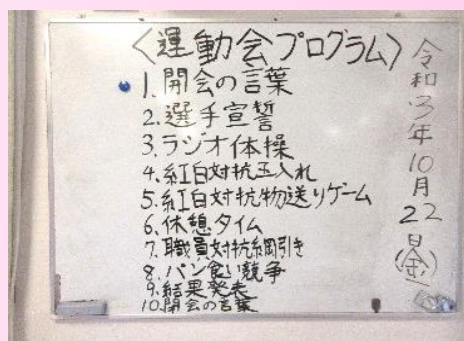 〈運動会プログラム〉
1.開会の言葉
2.選手宣誓
3.ラジオ体操
4.紅白対抗玉入れ
5.紅白対抗物送りゲーム
6.休憩タイム
7.職員対抗綱引き
8.パン食い競争
9.結果発表
10.閉会の言葉
令和3年10月22日(金)